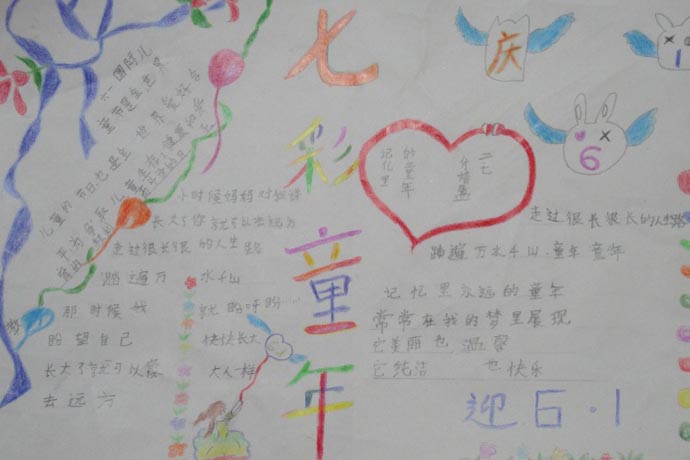 七彩童年
庆
6
1
六一国际儿
童节是全世界
儿童的节日也是全
小时候妈妈对我讲
长大了你就可以去远方
走过很长很长的人生路
踏遍万水千山
那时候我就盼呀盼…
盼望自己快快长大
长大了就可以像大人一样
去远方
记忆里
的童年
走过很长很长的人生路
踏遍万水千山·童年童年
记忆里永远的童年
常常在我的梦里展现
它美丽也温馨
它纯洁也快乐
迎6·1